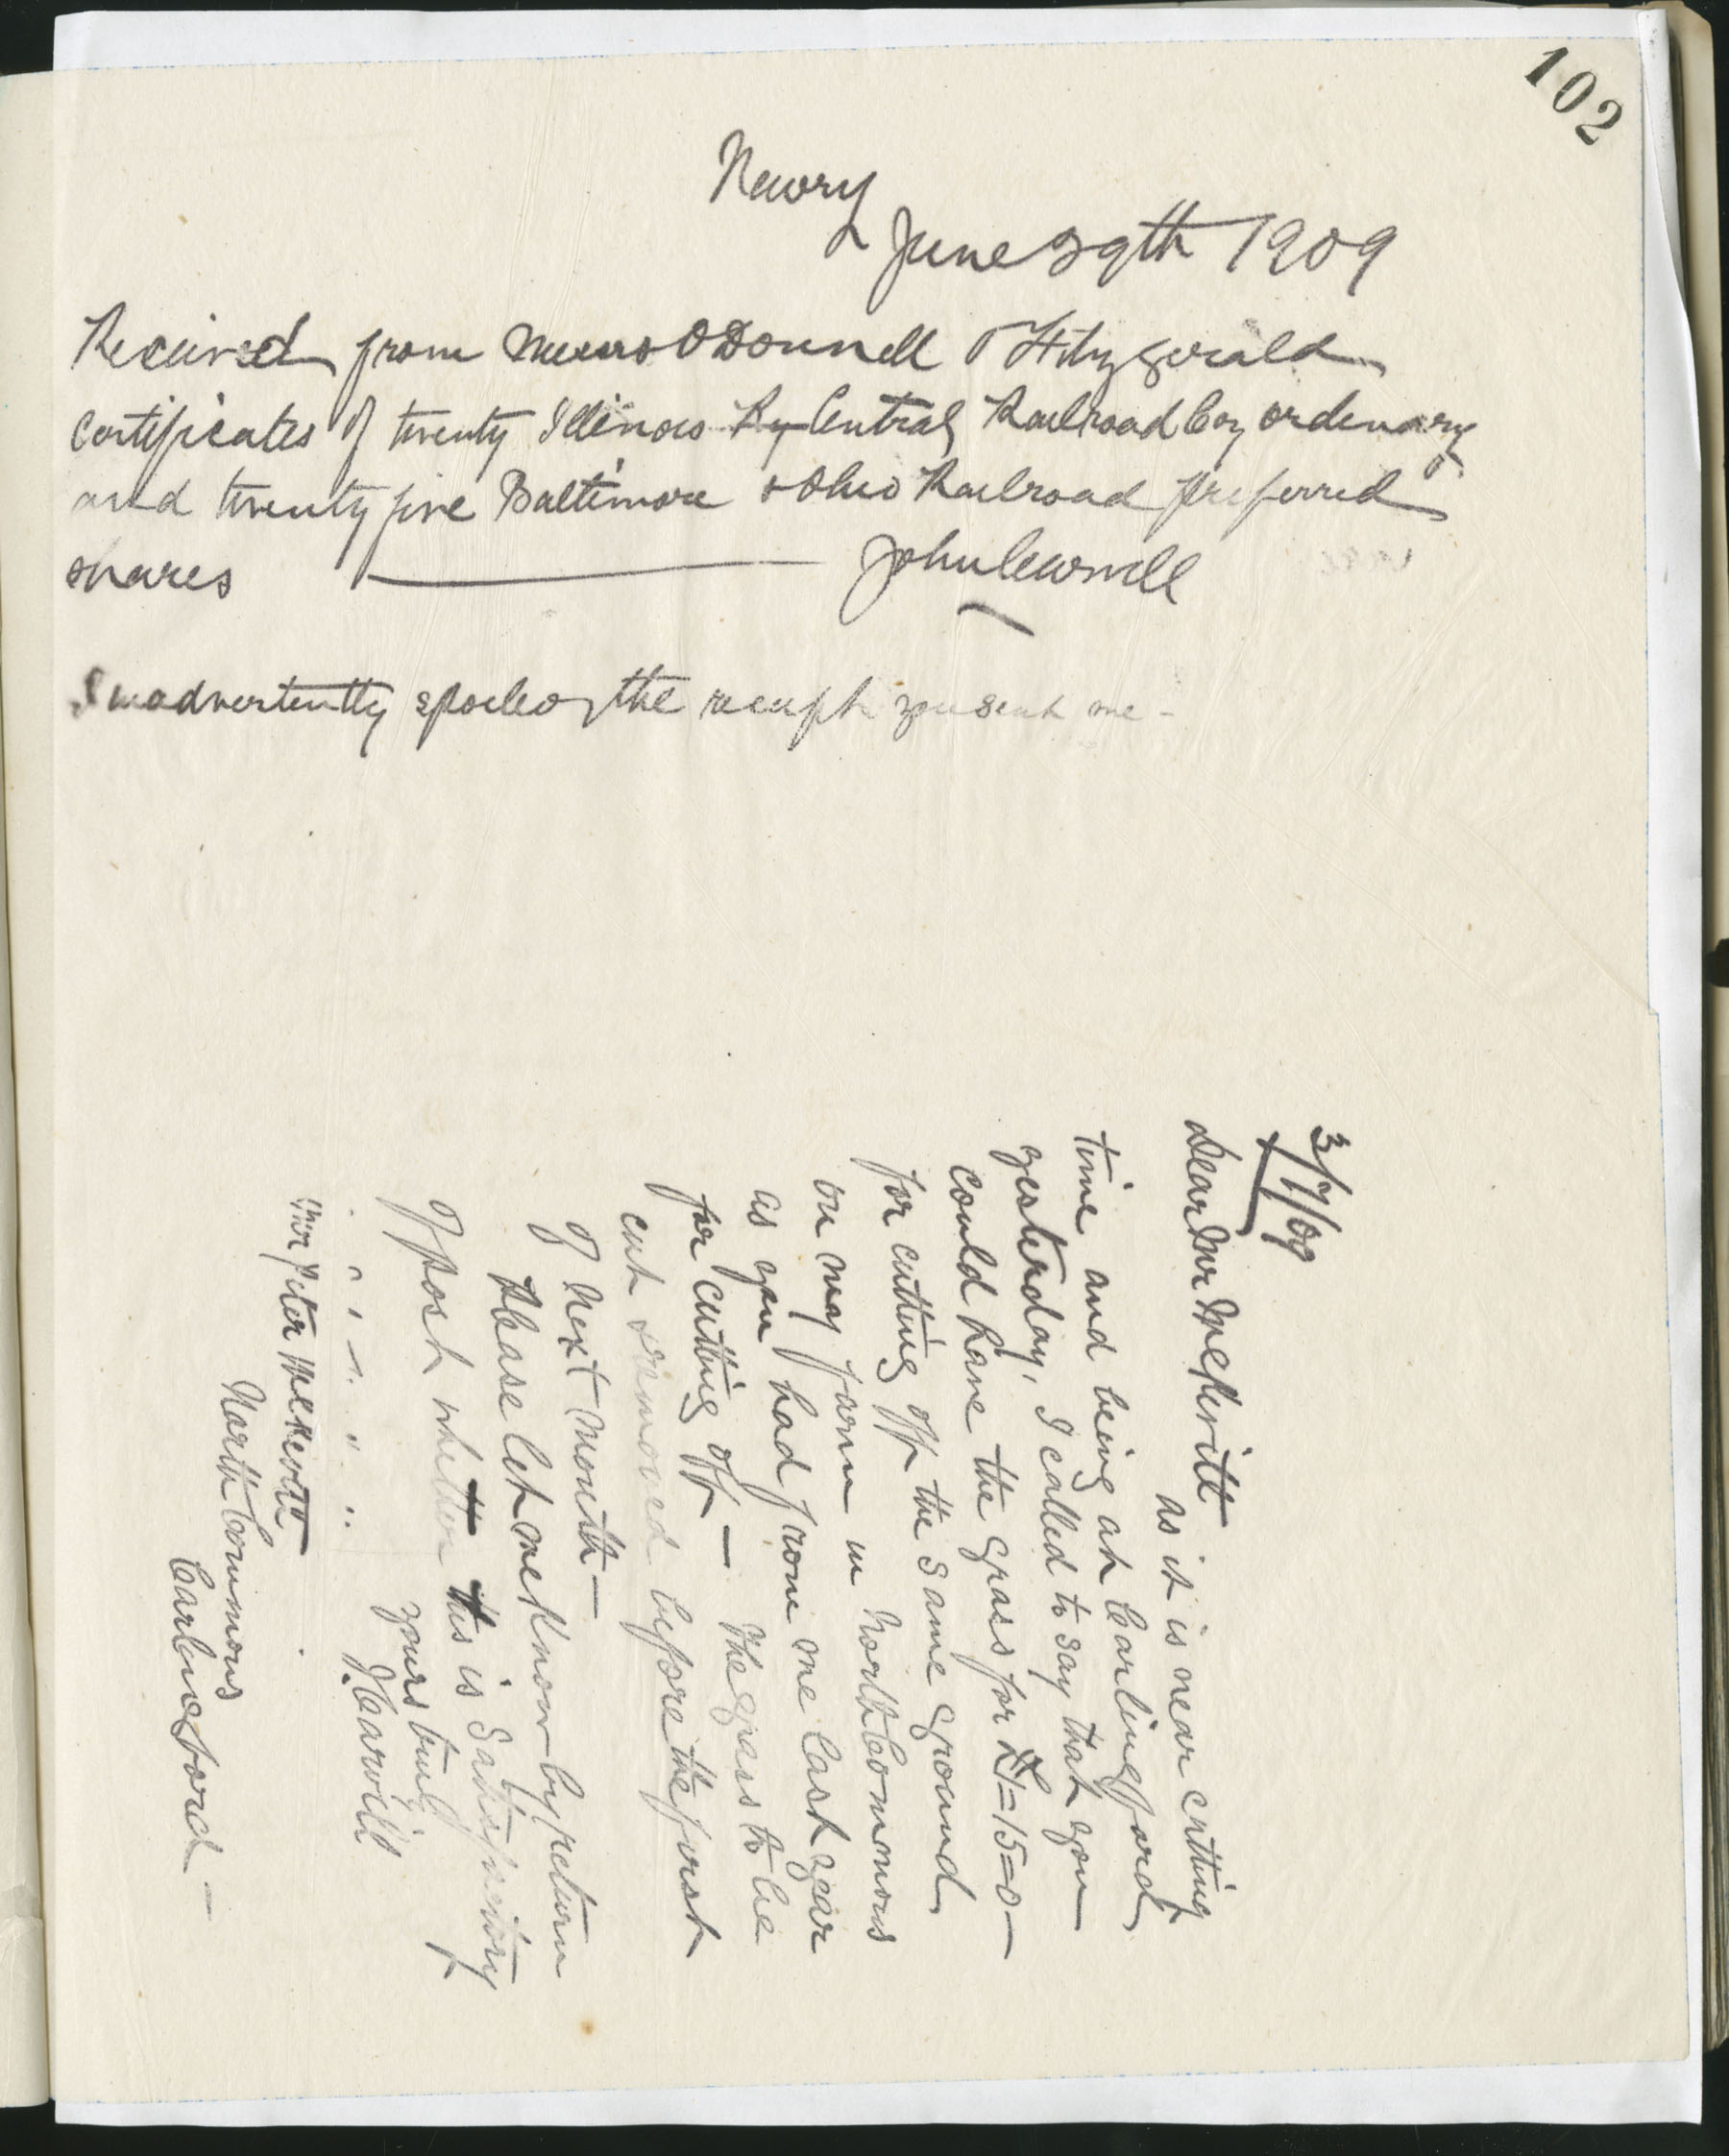 102
Newry
June 29th 1909
Received from Messrs O'Donnell & Fitzgerald
Certificates of twenty Illinois Ry Central Railroad Coy ordinary
and twenty five Baltimore & Ohio Railroad preferred
shares — John Carvill
I inadvertently spoiled the receipt you sent me -
3/7/09
Dear Mr McKevitt
as it is near cutting
time and being at Carlingford
yesterday, I called to say that you
could have the grass for £1=15=0—
for cutting off the same ground
on my farm in North Commons
as you had from me last year
for cutting off — The grass to be
cut & removed before the first
of next month—
Please let me know by return
of post whether this is satisfactory
yours truly
J. Carvill
Mr Peter McKevitt
North Commons
Carlingford —